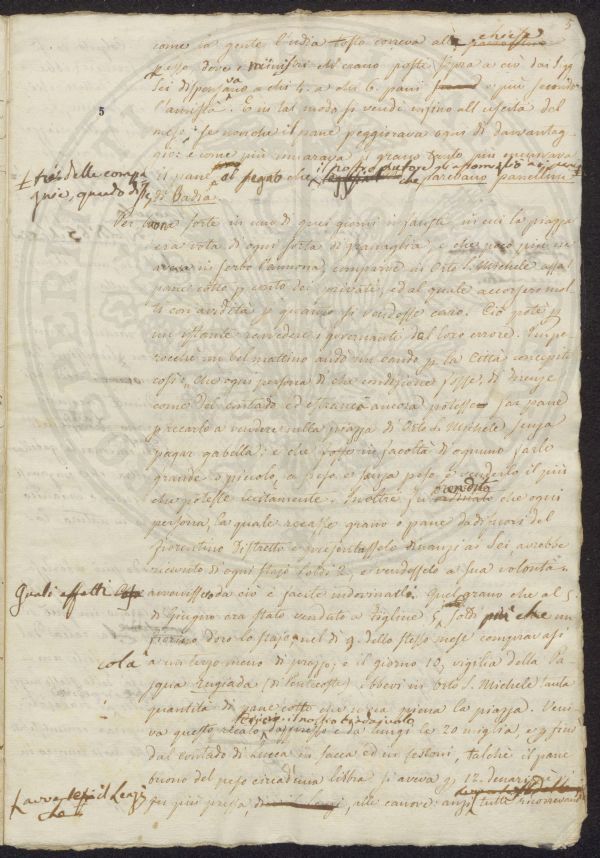 5
come la gente l'udia tosto correva alle chiese
presso dove i ministri che erano posti sopra a ciò dai Sei
dispensavano a chi 4. a chi 6. pani e più secondo
5
l'amistà. E in tal modo si vendè infino all'uscita del
mese: se non che il pane peggiorava ogni dì davantag-
gio: e come più rincarava il grano tanto più
il pane che il nostro autore
che sarebano panellini
di Badia.
Per buona sorte in uno di quei giorni in cui la piazza
era vota di ogni sorta di granaglia, e che poco più ne
aveva in serbo l'annona, comparve in Orto S. Michele assai
pane cotto p conto dei privati, ed al quale accorsero mol-
ti con avidità p quanto si vendesse caro. Ciò potè p
un istante ravvedere i governanti del loro errore. Impe-
rocchè un bel mattino andò un bando p la Città concepito
così, che ogni persona di che condizione fosse, di Firenze
come del contado ed estranea ancora potesse far pane
e recarlo a vendere sulla piazza di Orto S. Michele senza
pagar gabella: e che fosse in facoltà di ognuno farlo
grande o piccolo, a peso e senza peso e venderlo il più
che potesse recitamente. Inoltre fu ordinato che ogni
persona, la quale recasse grano o pane da di fuori del
fiorentino Distretto e presentasselo dinanzi ai Sei, avrebbe
ricevuto di ogni stajo soldi 2, e vendesselo a sua volontà.
Quali effetti
avvenissero da ciò è facile indovinarlo. Quel grano che al 5.
di Giugno era stato venduto a Figline soldi più che un
fiorino d'oro lo stajo, nel dì 9. dello stesso mese compravasi
colà
a un terzo meno di prezzo; e il giorno 10, vigilia della Pa-
squa Rugiada (di Pentecoste) ebbevi in Orto S. Michele tanta
quantità di pane cotto che n'era piena la piazza. Veni-
va questo recato da presso e da lungi le 20 miglia, e p fino
dal contado di Lucca in sacca ed in cestoni, talchè il pane
buono del peso circa di una libbra si aveva p 12. denari
il Lenzi
che
alle canove: anzi tutti ricorrevano